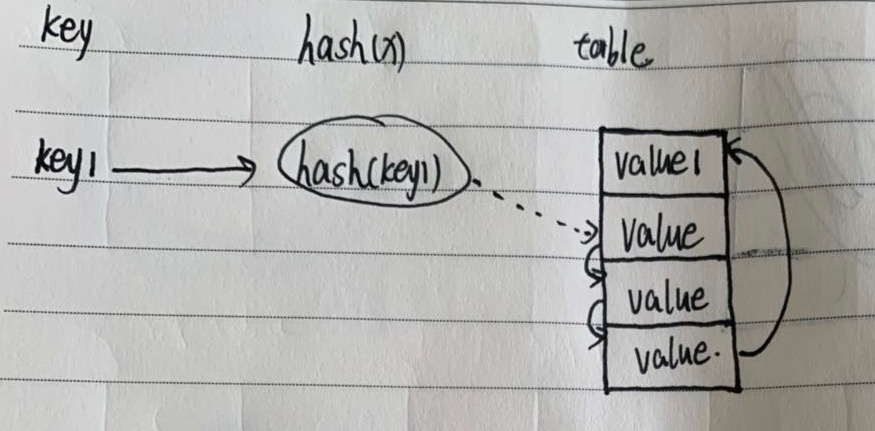 key hash(x) table
key1 hash(key1) value1
value
value
value.